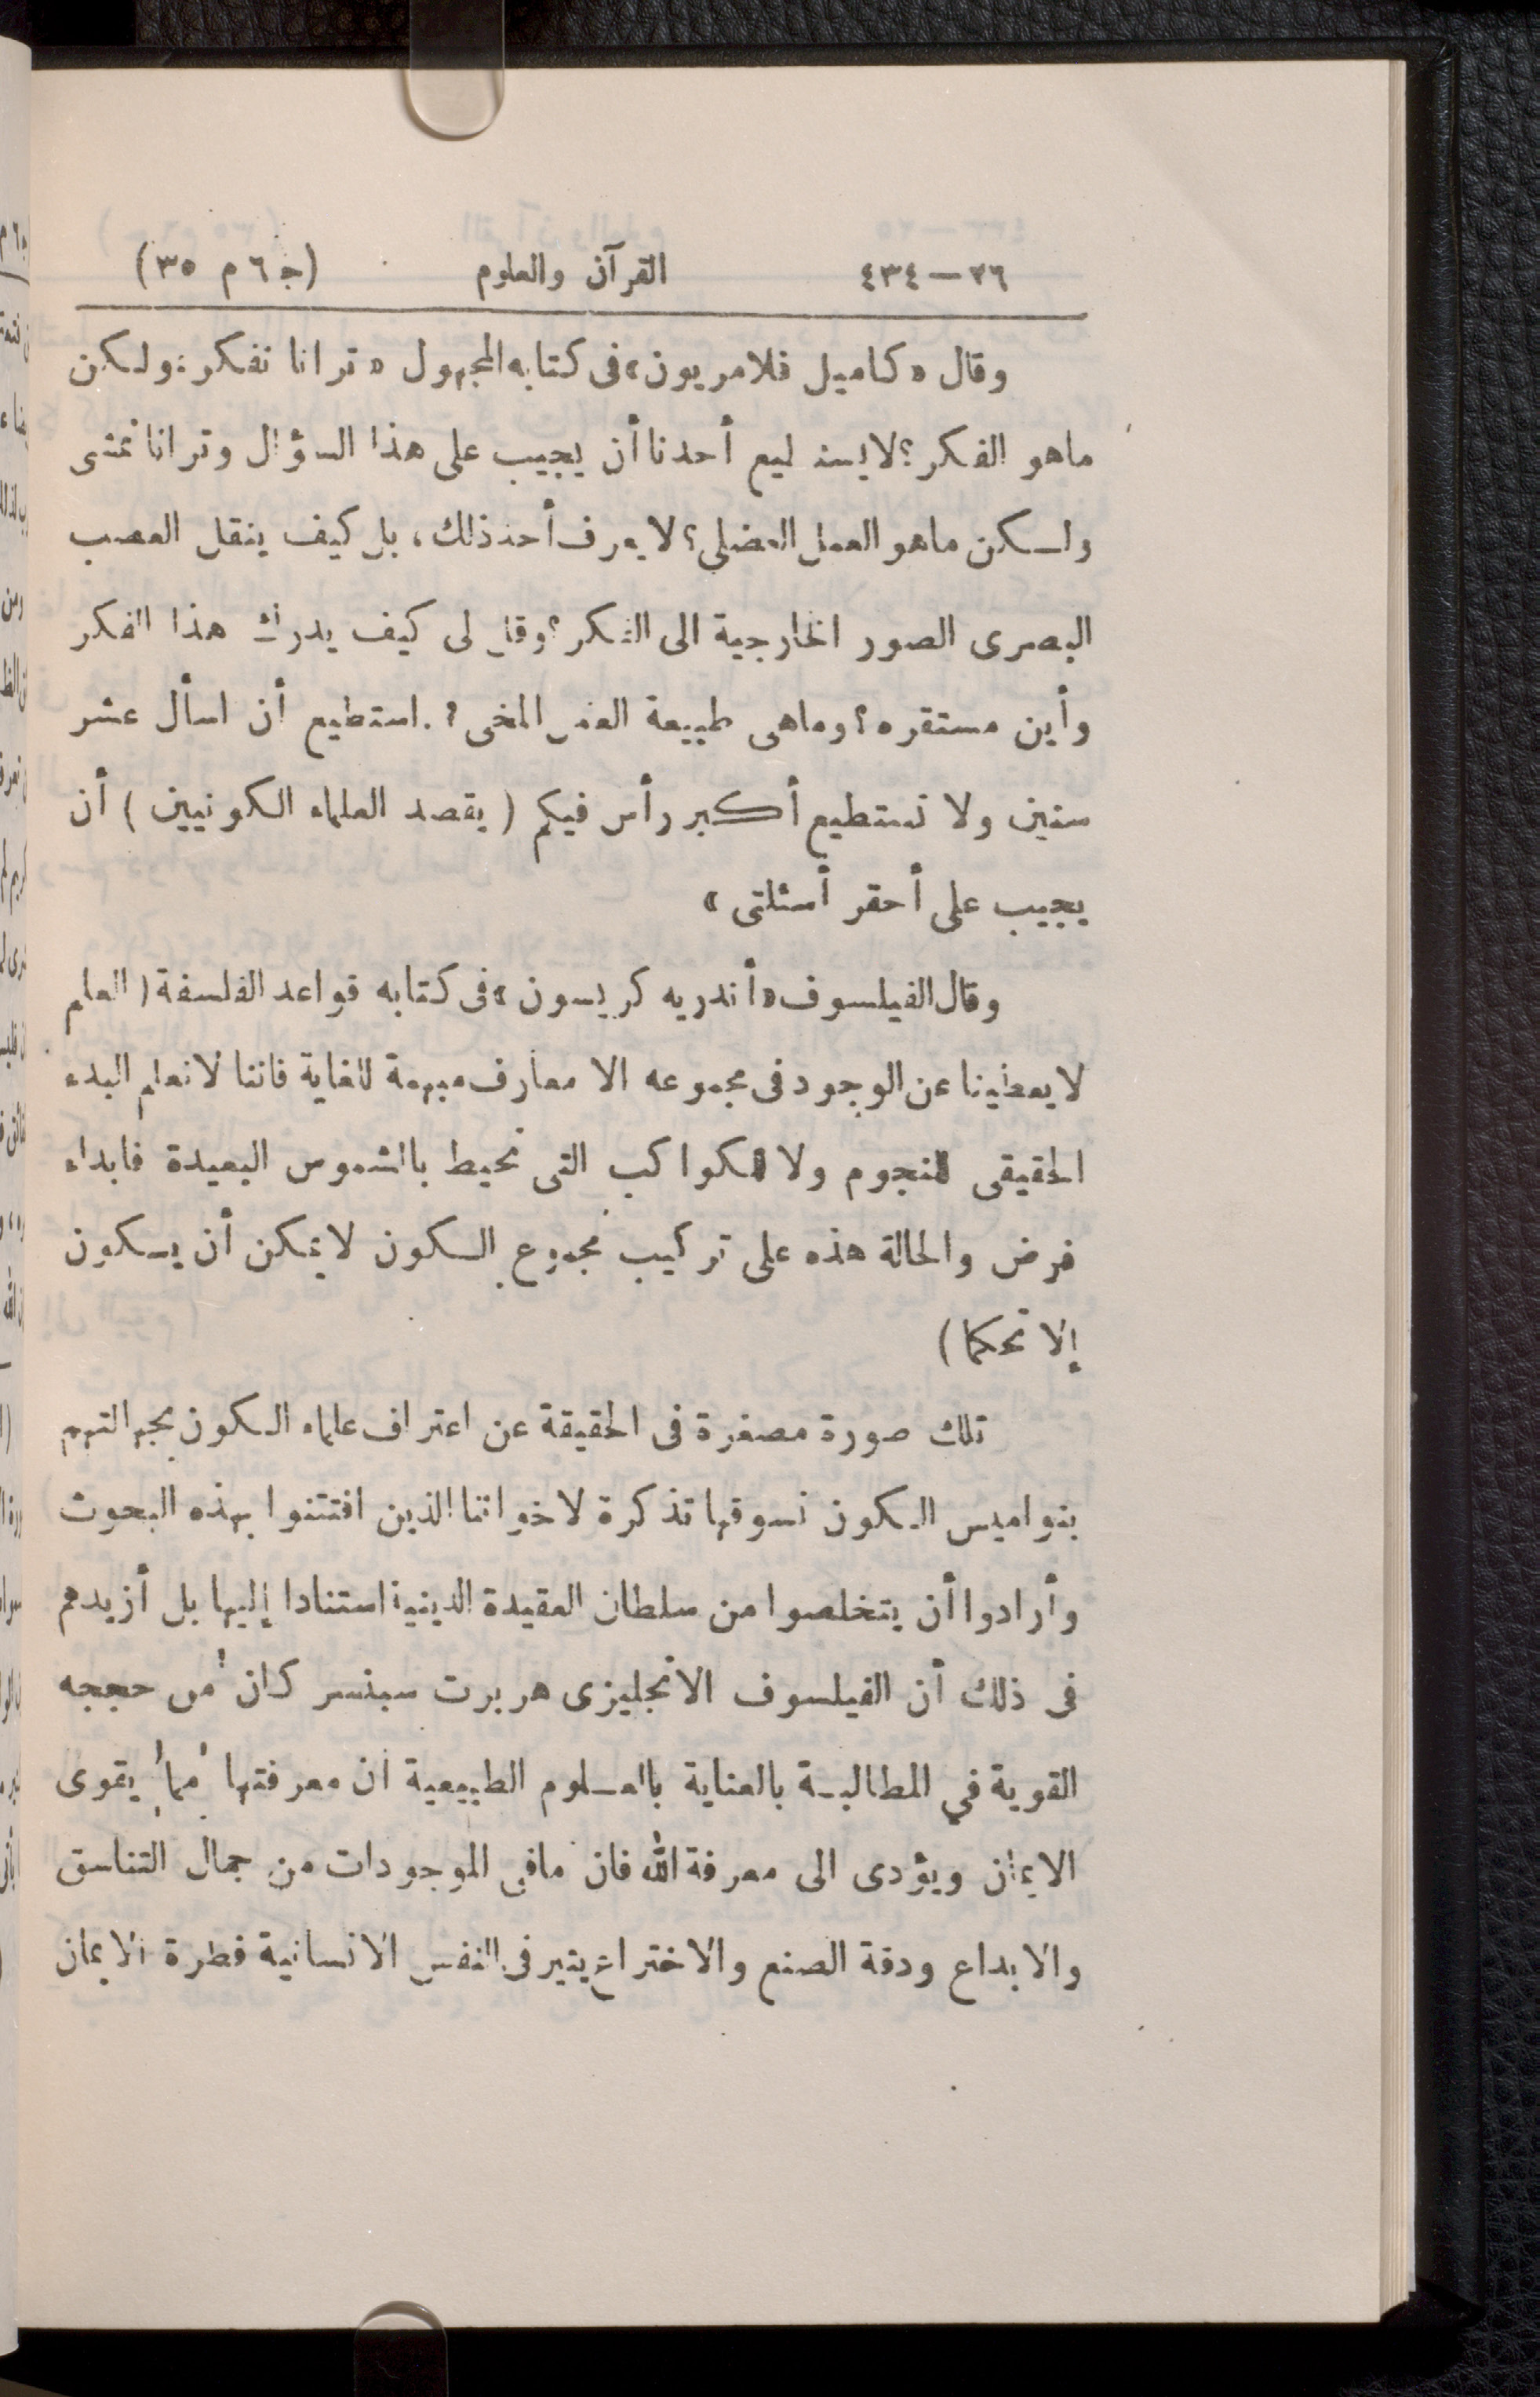 ٢٦—٤٣٤ القرآن والعلوم (ج ٦ م ٣٥)
وقال «كاميل فلامريون» فى كتابه المجهول «ترانا نفكر: ولكن
ماهو الفكر؟ لايستطيع أحدنا أن يجيب على هذا السؤال وترانا نمشى
ولكن ماهو العمل العضلى؟ لايعرف أحد ذلك، بل كيف ينقل العصب
البصرى الصور الخارجية الى الفكر؟ وقل لى كيف يدرك هذا الفكر
وأين مستقره؟ وماهى طبيعة العمل المخى؟. استطيع أن اسأل عشر
سنين ولا تستطيع أكبر رأس فيكم (يقصد العلماء الكونيين) أن
يجيب على أحقر أسئلتى»
وقال الفيلسوف «أندريه كريسون» فى كتابه قواعد الفلسفة (العلم
لايعطينا عن الوجود فى مجموعه الا معارف مبهمة للغاية فاننا لانعلم البدء
الحقيقى للنجوم ولا للكواكب التى تحيط بالشموس البعيدة فابداء
فرض والحالة هذه على تركيب مجموع الكون لايمكن أن يكون
إلا تحكما)
تلك صورة مصغرة فى الحقيقة عن اعتراف علماء الكون بجهالتهم
بنواميس الكون نسوقها تذكرة لاخواننا الذين افتتنوا بهذه البحوث
وأرادوا أن يتخلصوا من سلطان العقيدة الدينية استنادا إليها بل أزيدهم
فى ذلك أن الفيلسوف الانجليزى هربرت سبنسر كان من حججه
القوية في المطالبة بالعناية بالعلوم الطبيعية أن معرفتها مما يقوى
الايمان ويؤدى الى معرفة الله فان مافى الموجودات من جمال التناسق
والابداع ودقة الصنع والاختراع يثير فى النفس الانسانية فطرة الايمان